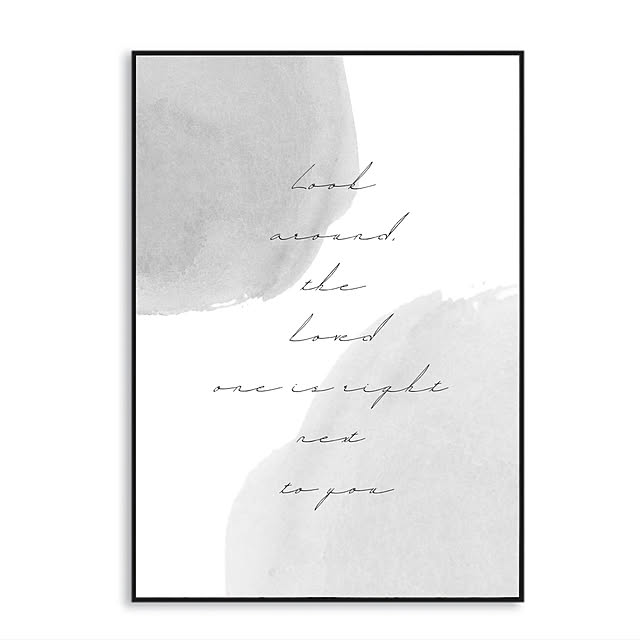 Look
around,
the
Loved
one is right
next
to you